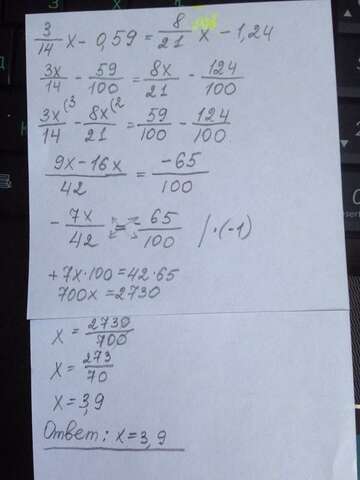 3/14 x - 0,59 = 8/21 x - 1,24
3x/14 - 59/100 = 8x/21 - 124/100
3x/14 (3 - 8x/21 (2 = 59/100 - 124/100
9x-16x/42 = -65/100
- 7x/42 = - 65/100 / ·(-1)
+7x·100=42·65
700x=2730
x = 2730/700
x = 273/70
x = 3,9
Ответ: x=3,9